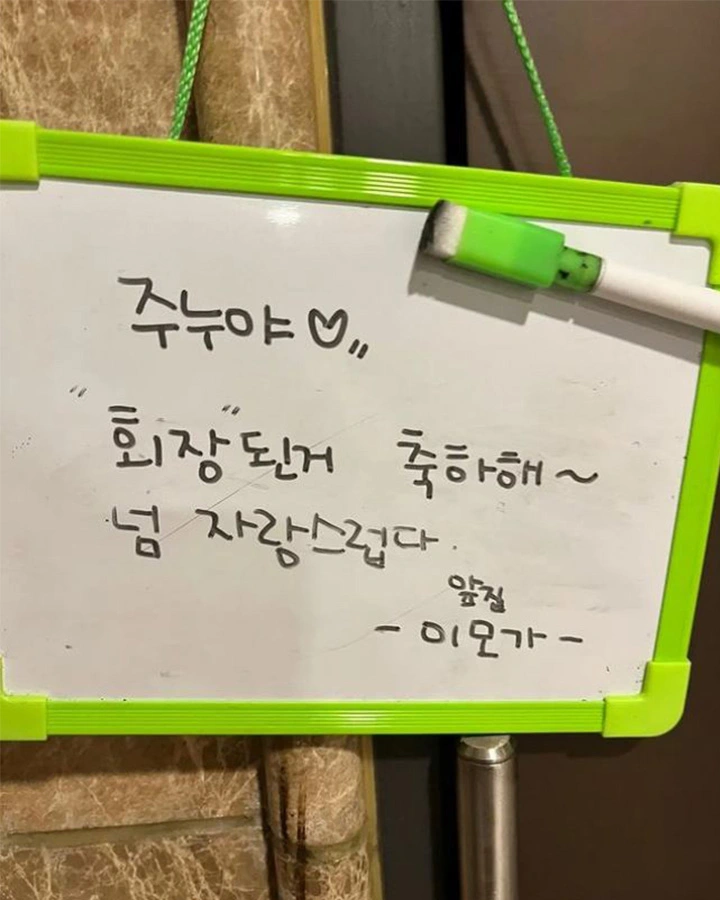 주누야♡,,
"회장"된거 축하해~
넘 자랑스럽다.
앞집
- 이모가 -